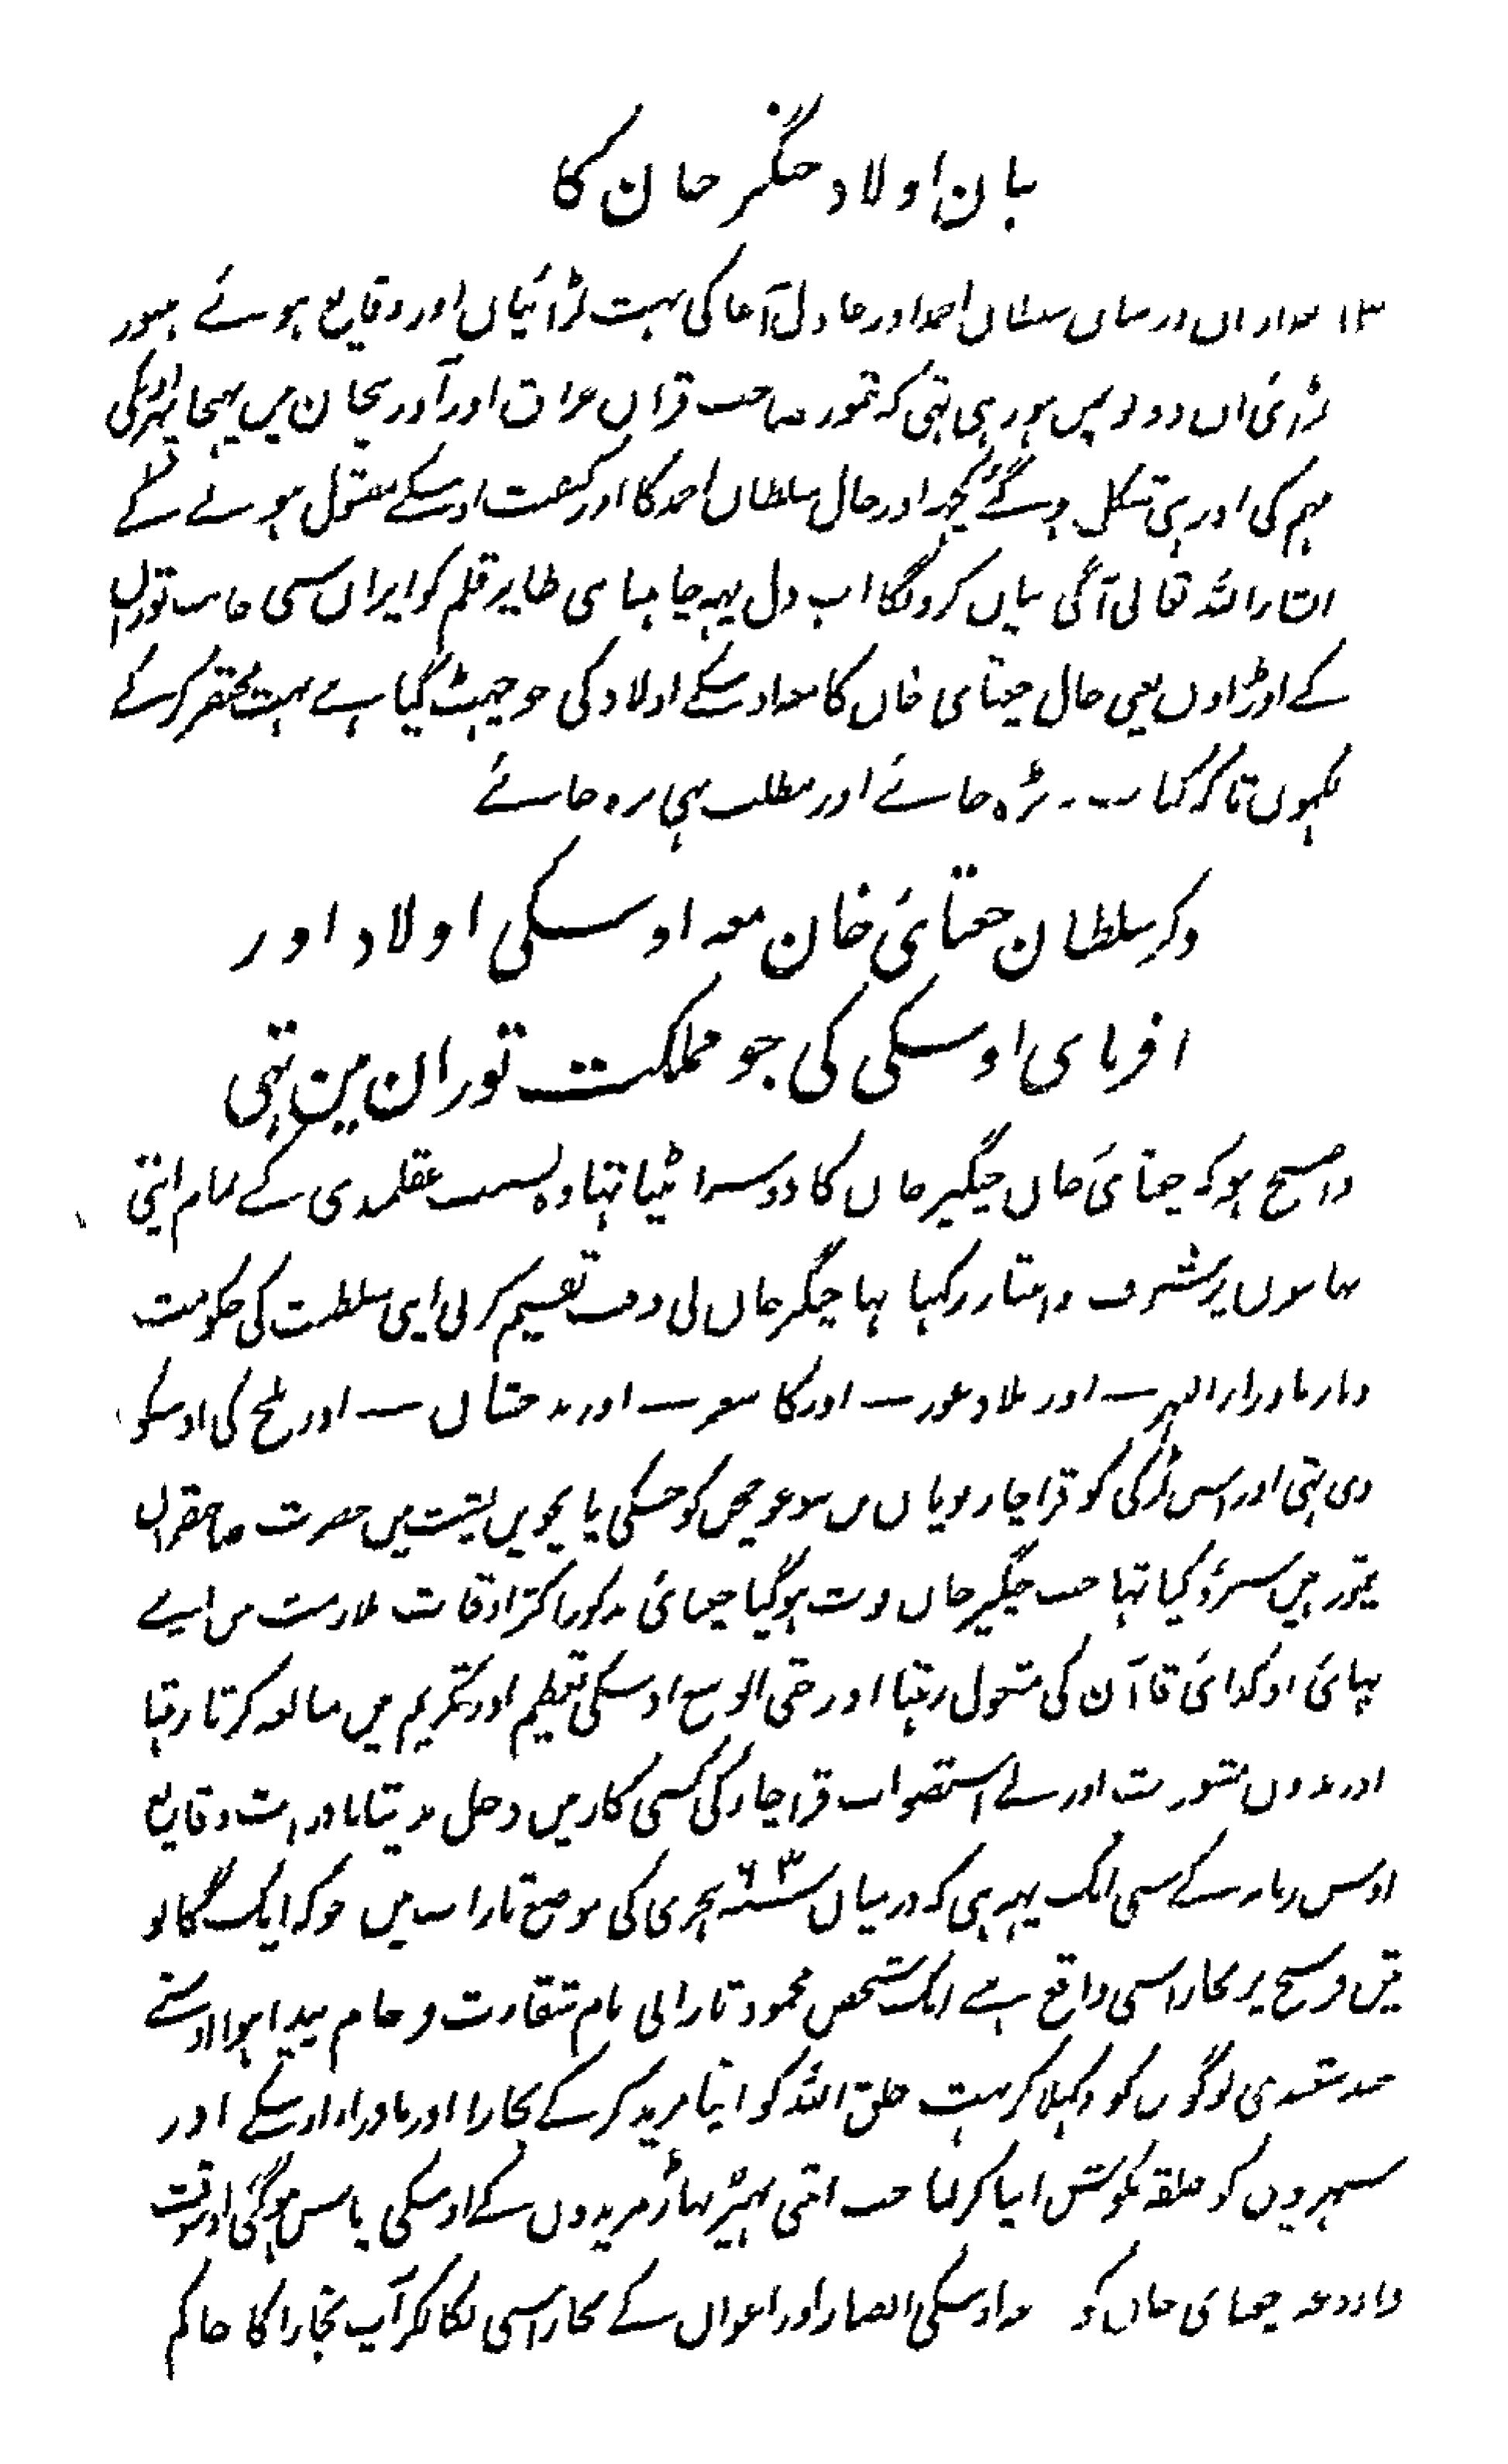 بیان اولاد چنگیز خان کا
بعد ازاں درمیان سلطان احمد اور عادل آغا کی بہت لڑائیاں اور وقایع ہوئے ہنوز
لڑائی ان دونوں میں ہو رہی تہی کہ تیمور صاحب قراں عراق اور آذربیجان میں پہنچا پہر اونکی
مہم کی اور ہی شکل ہو گئے کچہہ اور حال سلطان احمد کا اور کیفیت اوسکے مقتول ہونے کے
انشاء اللہ تعالی آگی بیاں کرونگا اب دل یہہ چاہتا ہی طایر قلم کو ایران سی جانب توران
کے اوڑاوں یعنی حال چغتای خاں کا معہ اوسکے اولاد کی جو چہٹ گیا ہے بہت مختصر کرکے
لکہوں تاکہ کتاب نہ بڑہ جائے اور مطلب بہی نرہ جائے
ذکر سلطان چغتائی خان معہ اوسکی اولاد اور
اقربای اوسکی کی جو مملکت توران مین تہی
واضح ہو کہ چغتائی خاں چنگیز خاں کا دوسرا بیٹا تہا وہ بسبب عقلمندی کے تمام اپنی
بہائیوں پر شرف و امتیاز رکہتا تہا چنگیز خاں نی وقت تقسیم کرنی اپنی سلطنت کی حکومت
دیار ماوراء النہر اور بلاد یغور اور کاشغر اور بدخشاں اور بلخ کی اوسکو
دی تہی اور اس لڑکی کو قراچار نویاں بن سوغوجیجن کو جسکی پانچویں پشت میں حضرت صاحبقراں
تیمور ہیں سپرد کیا تہا جب چنگیز خاں فوت ہو گیا چغتائی مذکور اکثر اوقات ملازمت میں اپنے
بہائی اوکدائی قاآن کی مشغول رہتا اور حتی الوسع اوسکی تعظیم اور تکریم میں مبالغہ کرتا رہتا
اور بدوں مشورت اور بے استصواب قراچار کی کسی کار میں دخل ندیتا تہا وقایع
اوس زمانہ کے سی ایک یہہ ہی کہ درمیاں سنہ ۶۳۰ ہجری کی موضع تاراب میں جو کہ ایک گانو
تین فرسخ پر بخارا سی واقع ہے ایک شخص محمود تارابی نام شقاوت فرجام پیدا ہوا اوسنے
چند شعبدی لوگوں کو دکہلا کر بہت خلق اللہ کو اپنا مرید کر کے بخارا اور ماورا اوسکے اور
شہروں کو حلقہ بگوش اپنا کر لیا جب اتنی بہیڑ بہاڑ مریدوں کے اوسکی پاس ہو گئی اوسوقت
داروغہ چغتائی خاں کو معہ اوسکی انصار اور اعواں کے بخارا سی نکالکر آپ بخارا کا حاکم